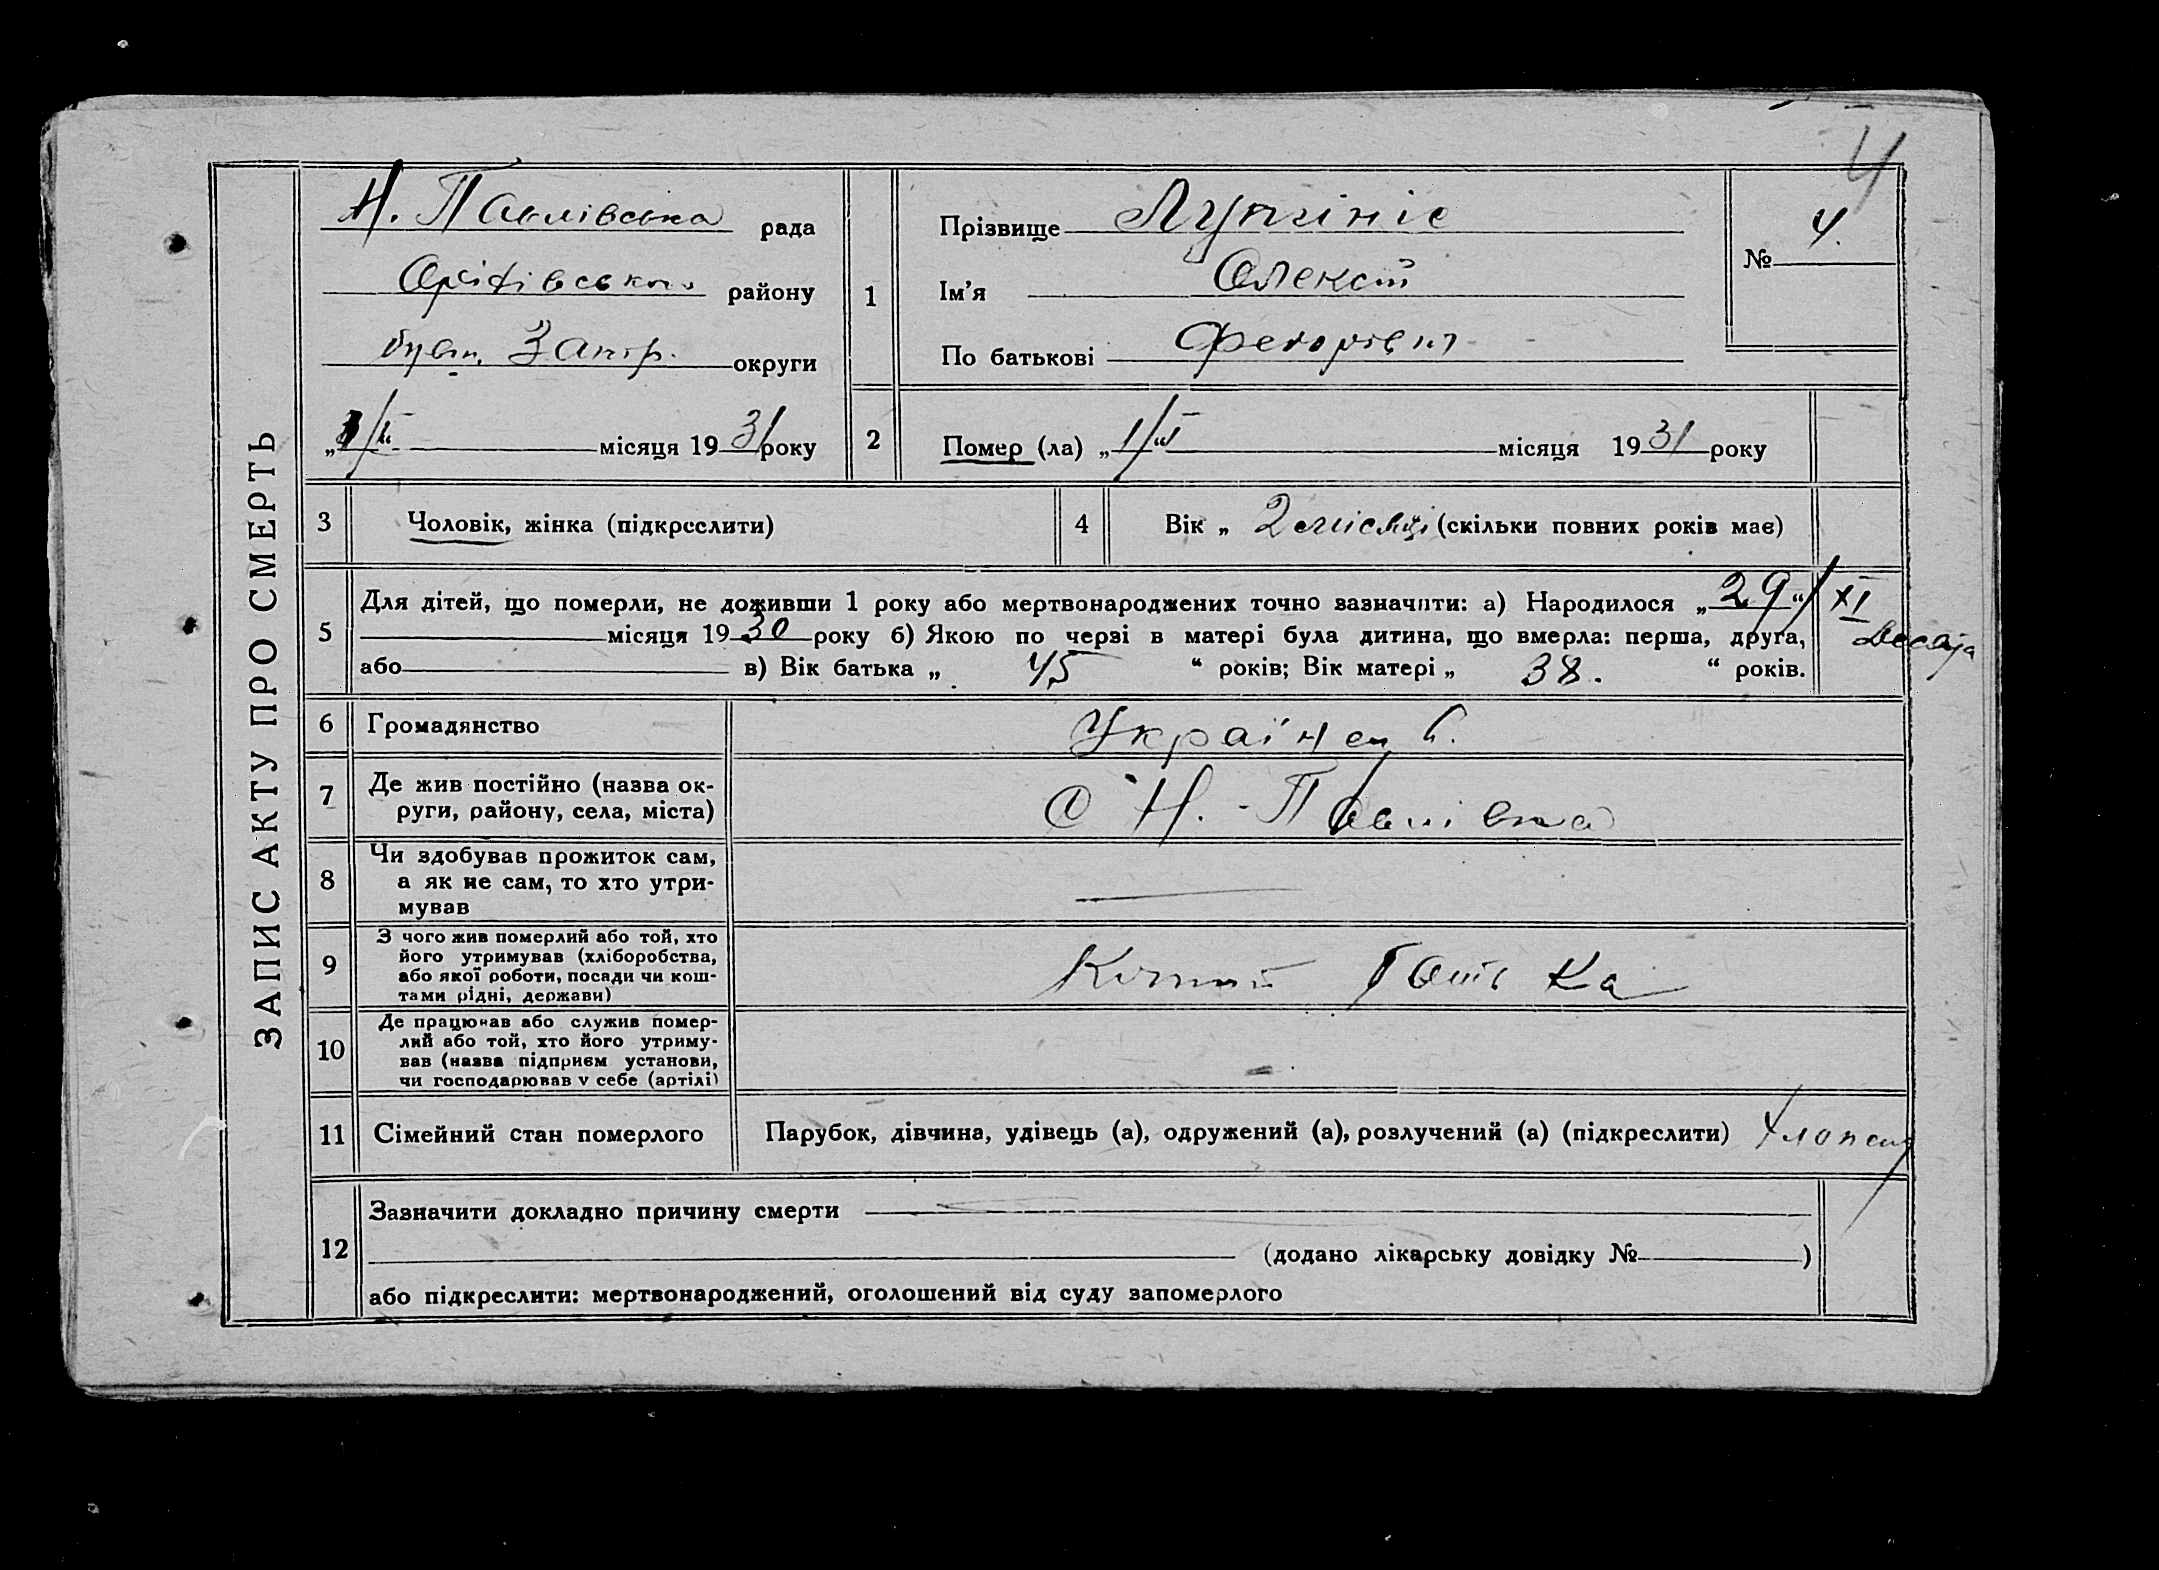 4
ЗАПИС АКТУ ПРО СМЕРТЬ
Н. Павлівська рада
району
бувш. Запор. округи
1/II місяця 1931 року
1
Прізвище
Ім'я Олексій
По батькові Федорович
№ 4.
2
Помер (ла) „1/II“ місяця 1931 року
3
Чоловік, жінка (підкреслити)
4
Вік „ 2 місяці (скільки повних років має)
5
Для дітей, що померли, не доживши 1 року або мертвонароджених точно зазначити: а) Народилося „29“/XI
місяця 1930 року б) Якою по черзі в матері була дитина, що вмерла: перша, друга, Десята
або в) Вік батька „ 45 “ років; Вік матері „ 38. “ років.
6
Громадянство
Українець.
7
Де жив постійно (назва ок-
руги, району, села, міста)
С Н.-Павлівка
8
Чи здобував прожиток сам,
а як не сам, то хто утри-
мував
9
З чого жив померлий або той, хто
його утримував (хліборобства,
або якої роботи, посади чи кош-
тами рідні, держави)
Батька
10
Де працював або служив помер-
лий або той, хто його утриму-
вав (назва підприєм установи,
чи господарював у себе (артілі)
11
Сімейний стан померлого
Парубок, дівчина, удівець (а), одружений (а), розлучений (а) (підкреслити) Хлопець
12
Зазначити докладно причину смерти
(додано лікарську довідку № )
або підкреслити: мертвонароджений, оголошений від суду запомерлого